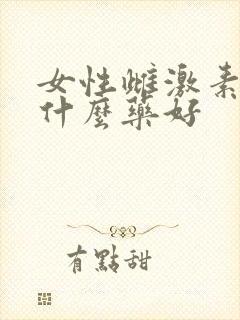 女性雌激素
什麼藥好
有點甜